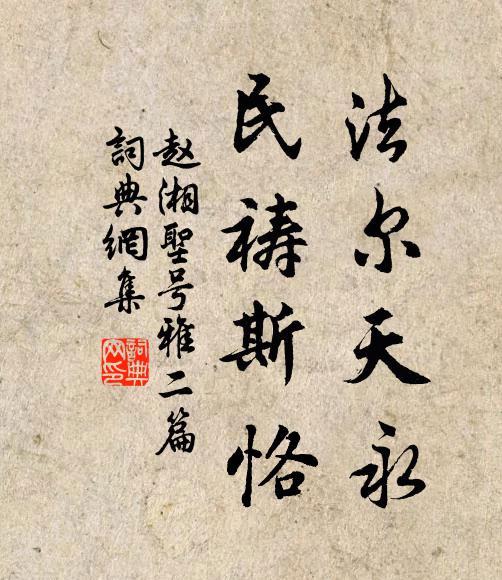 法尔天永
民祷斯恪
赵湘聖号雅二篇
詞典網集
詞典网印